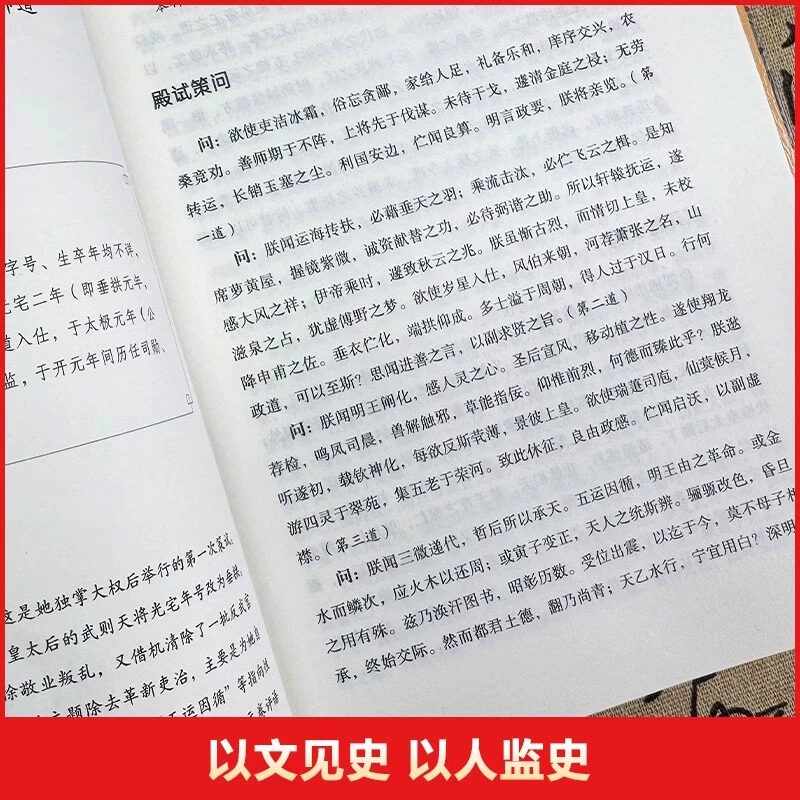 字号、生卒年均不详,
光宅二年（即垂拱元年,
道入仕，于太极元年（公
监，于开元年间历任司勋、
这是她独掌大权后举行的第一次策试,
皇太后的武则天将光宅年号改为垂拱,
徐敬业叛乱，又借机清除了一批反武官
主题除去革新吏治，主要是为她自
五运因循”等指向
殿试策问
问：欲使吏洁冰霜，俗忘贪鄙，家给人足，礼备乐和，庠序交兴，农
桑竞劝。善师期于不阵，上将先于伐谋。未待干戈，遽清金庭之祲；无劳
转运，长销玉塞之尘。利国安边，伫闻良算。明言政要，朕将亲览。（第
一道）
问：朕闻运海抟扶，必藉垂天之羽；乘流击汰，必伫飞云之楫。是知
席萝黄屋，握镜紫微，诚资献替之功，必待弼谐之助。所以轩辕抚运，遂
感大风之祥；伊帝乘时，遽致秋云之兆。朕虽惭古烈，而情切上皇，未校
滋泉之占，犹虚傅野之梦。欲使岁星入仕，风伯来朝，河荐萧张之名，山
降申甫之佐。垂衣伫化，端拱仰成。多士溢于周朝，得人过于汉日。行何
政道，可以至斯？思闻进善之言，以副求贤之旨。（第二道）
问：朕闻明王阐化，感人灵之心。圣后宣风，移动植之性。遂使翔龙
荐检，鸣凤司晨，兽解触邪，草能指佞。仰惟前烈，何德而臻此乎？朕逖
听遂初，载钦神化，每欲反斯莸薄，景彼上皇。欲使瑞萐司庖，仙蓂候月，
游四灵于翠苑，集五老于荣河。致此休征，良由政感。伫闻启沃，以副虚
襟。（第三道）
问：朕闻三微递代，哲后所以承天。五运因循，明王由之革命。或金
水而鳞次，应火木以还周；或寅子变正，天人之统斯辨。骊骥改色，昏旦
之用有殊。兹乃涣汗图书，昭彰历数。受位出震，以迄于今，莫不母子相
承，终始交际。然而都君土德，翻乃尚青；天乙水行，宁宜用白？深明
以文见史 以人监史